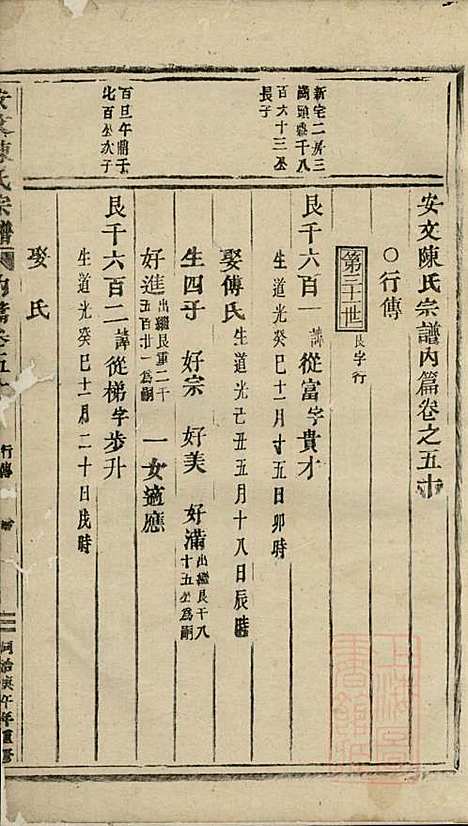 安文陳氏宗譜內篇卷之五十
○行傳
第三十世 艮字行
新宅二房三
崗頭鼎千八
百六十三公
長子
艮千六百一 諱從富字貴才
生道光癸巳十二月十五日卯時
娶傅氏 生道光己丑五月十八日辰時
生四子 好宗 好美 好滿 出繼艮千八
十五公為嗣
好進 出繼艮重二千
五百廿一為嗣
一女適應
百旦午鼎千
七百公次子
艮千六百二 諱從梯字步升
生道光癸巳十二月二十日戌時
娶 氏
安文陳氏宗譜 內篇卷五十
行傳
同治庚午年重修